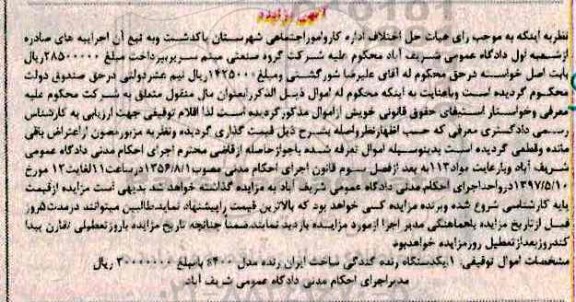 آگهی مزایده
نظربه اینکه به موجب رای هیات حل اختلاف اداره کارواموراجتماعی شهرستان پاکدشت وبه تبع آن اجراییه های صادره
ازشعبه اول دادگاه عمومی شریف آباد محکوم علیه شرکت گروه صنعتی میثم سریر،پرداخت مبلغ ۲۸۵۰۰۰۰۰ریال
بابت اصل خواسته درحق محکوم له آقای علیرضا شورگشتی ومبلغ۱۴۲۵۰۰۰ریال نیم عشردولتی درحق صندوق دولت
محکوم گردیده است وباعنایت به اینکه محکوم له اموال ذیل الذکررابعنوان مال منقول متعلق به شرکت محکوم علیه
معرفی وخواستار استیفای حقوق قانونی خویش ازاموال مذکورگردیده است لذا اقلام توقیفی جهت ارزیابی به کارشناس
رسمی دادگستری معرفی که حسب اظهارنظرواصله بشرح ذیل قیمت گذاری گردیده ونظریه مزبورمصون ازاعتراض باقی
مانده وقطعی گردیده است بدینوسیله اموال تعرفه شده باجوازحاصله ازقاضی محترم اجرای احکام مدنی دادگاه عمومی
شریف آباد وبارعایت مواد۱۱۳به بعد ازفصل سوم قانون اجرای احکام مدنی مصوب۱۳۵۶/۸/۱درساعت۱۱لغایت۱۲ مورخ
۱۳۹۷/۵/۱۰درواحداجرای احکام مدنی دادگاه عمومی شریف آباد به مزایده گذاشته خواهد شد بدیهی است مزایده ازقیمت
پایه کارشناسی شروع شده وبرنده مزایده کسی خواهد بود که بالاترین قیمت راپیشنهاد نماید.طالبین میتوانند درمدت۵روز
قبل ازتاریخ مزایده باهماهنگی مدیر اجرا ازمورد مزایده بازدید نمایند.ضمناً چنانچه تاریخ مزایده باروزتعطیلی تقارن پیدا
کندروزبعدازتعطیل روزمزایده خواهدبود
مشخصات اموال توقیفی: ۱.یکدستگاه رنده گندگی ساخت ایران رنده مدل ۴۰۰ بامبلغ ۳۰۰۰۰۰۰۰ ریال
مدیراجرای احکام مدنی دادگاه عمومی شریف آباد